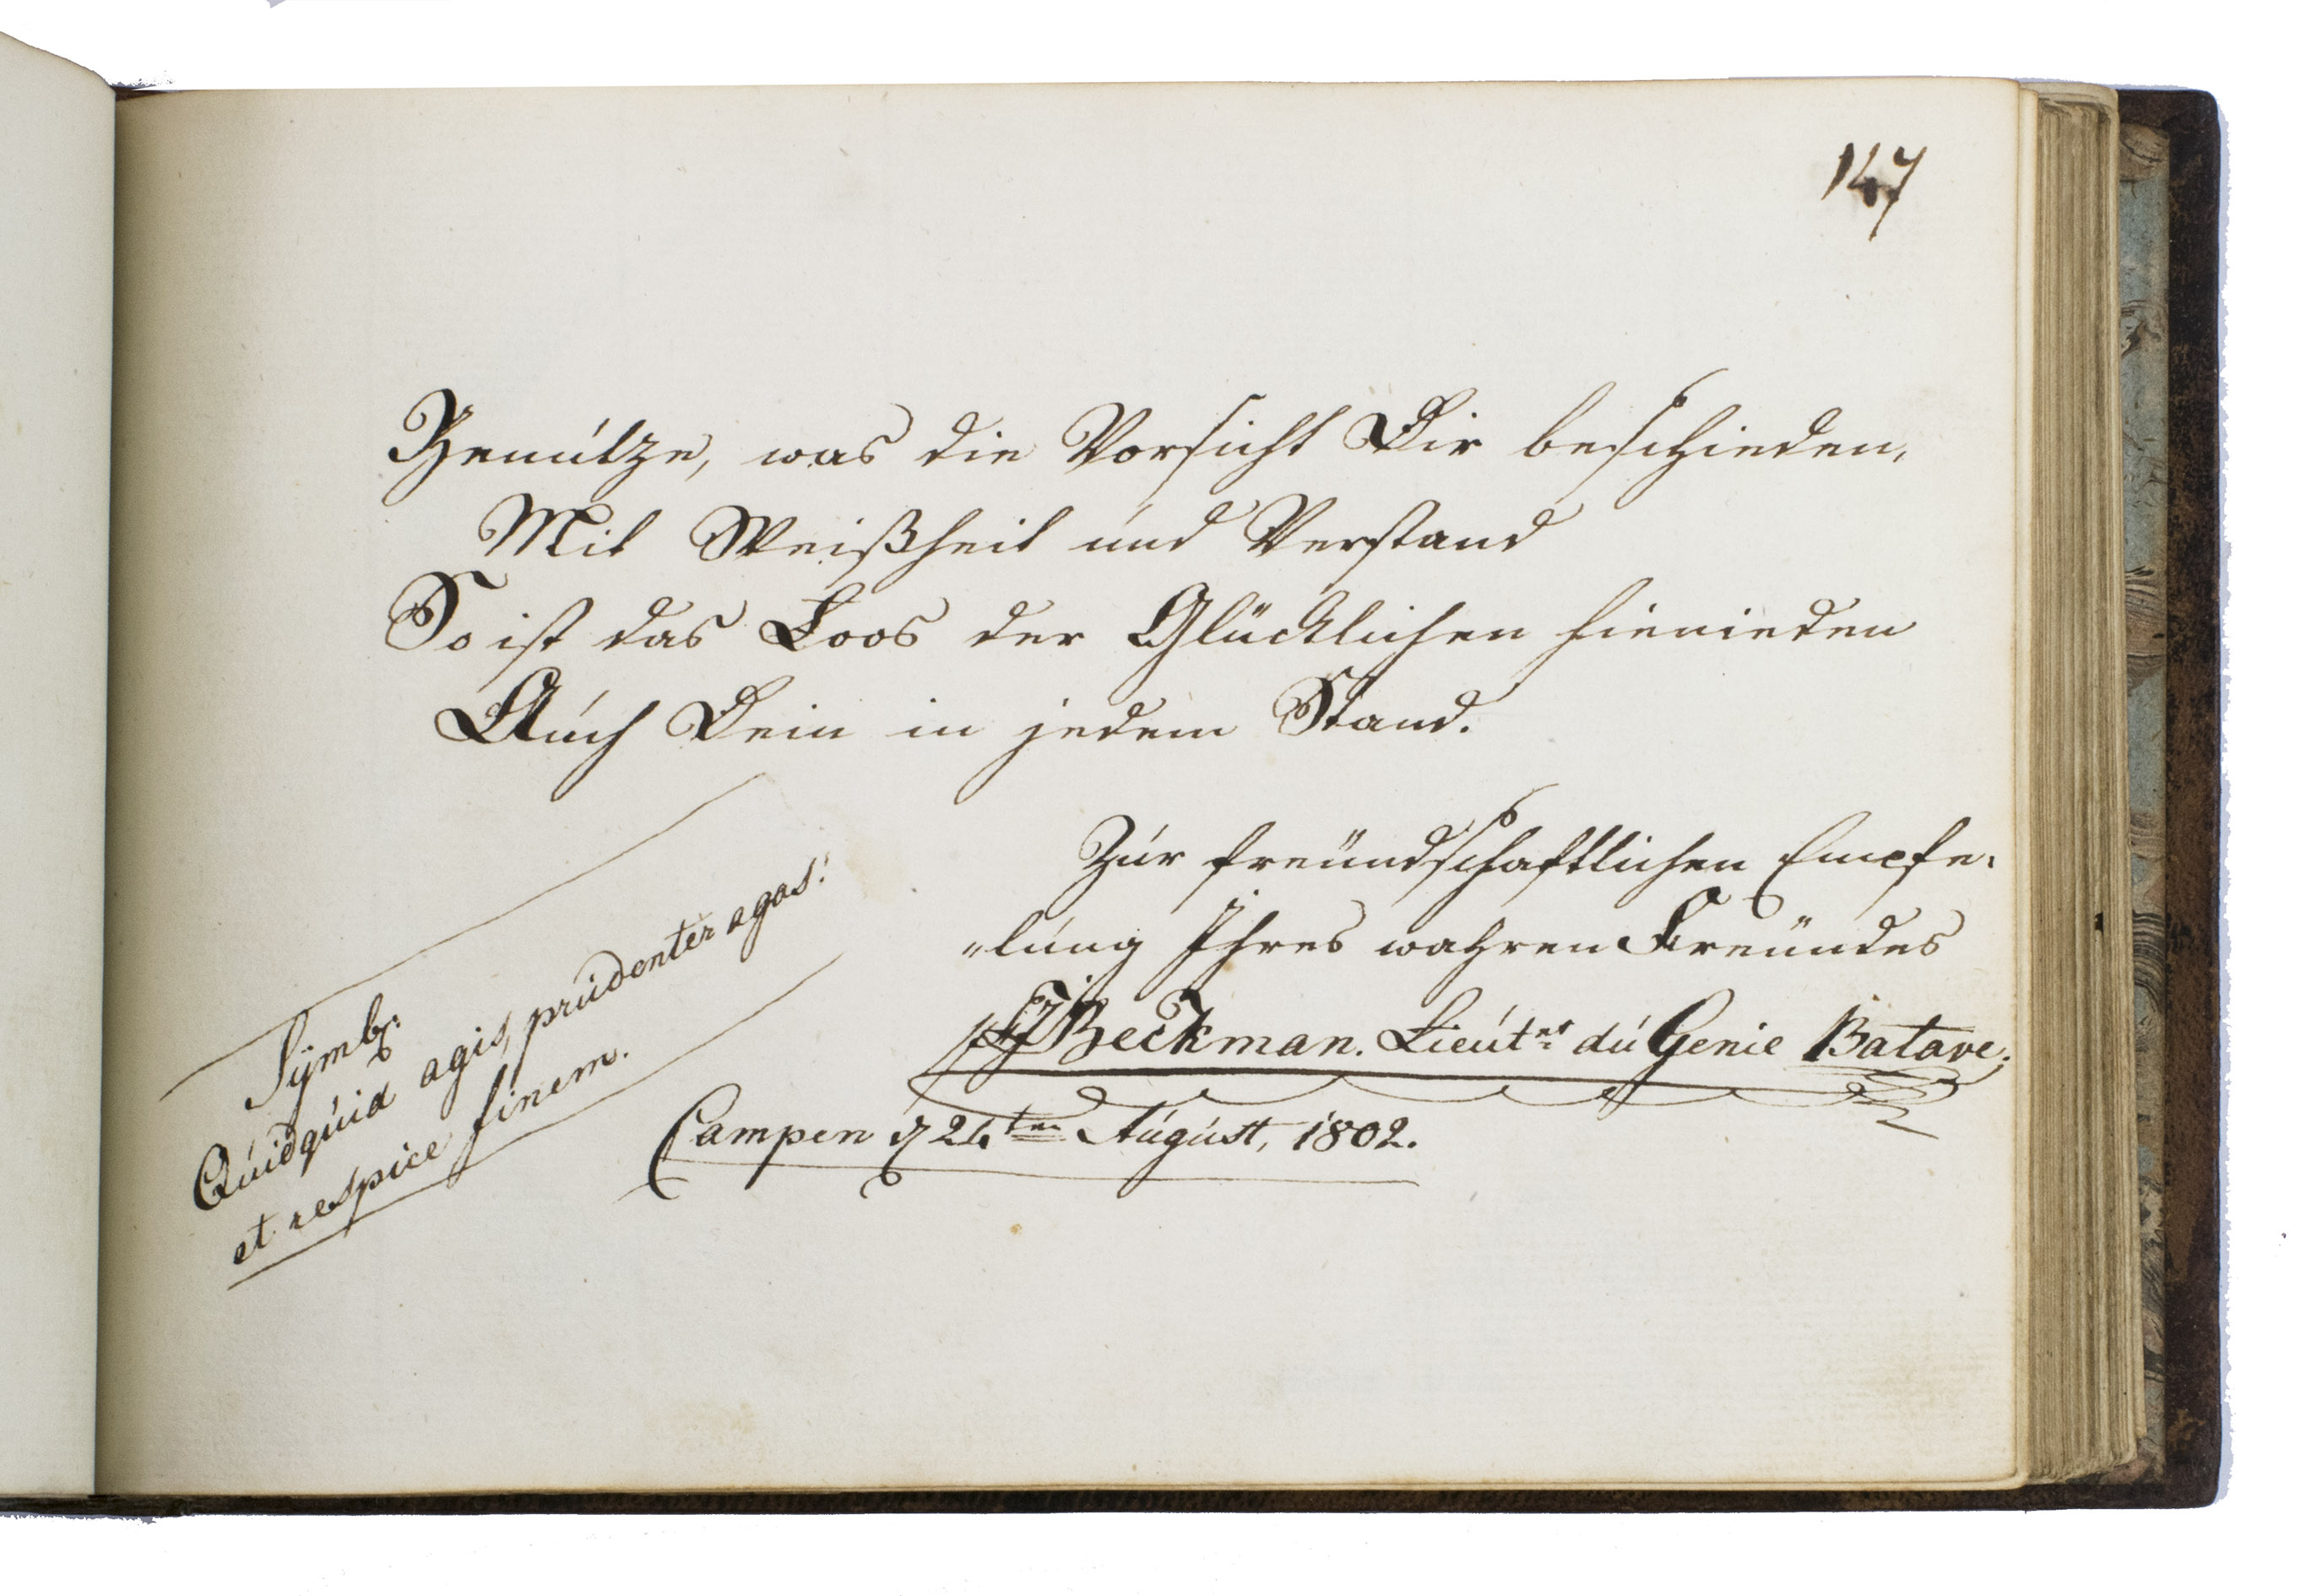 147
Benutze, was die Vorsicht Dir beschieden,
Mit Weißheit und Verstand
So ist das Loos der Glücklichen hienieden
Auch Dein in jedem Stand.
Zur freundschaftlichen Empfe¬
„lung Ihres wahren Freundes
Beckman. Lieutnt du Genie Batave.
Campen d 24ten August, 1802.
Symb:
Quidquid agis, prudenter agas!
et respice finem.